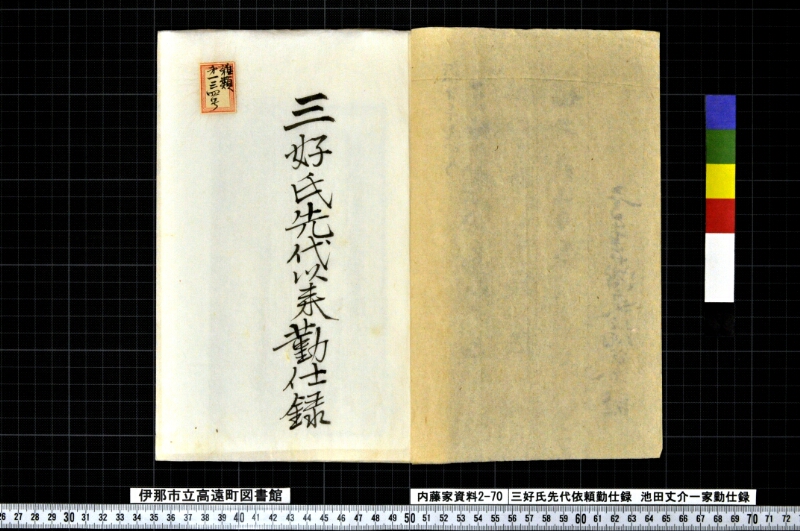 雑類
才一三四号
三好氏先代以来勤仕録
伊那市立高遠町図書館
内藤家資料2-70
三好氏先代依頼勤仕録 池田丈介一家勤仕録
26 27 28 29 30 31 32 33 34 35 36 37 38 39 40 41 42 43 44 45 46 47 48 49 50 51 52 53 54 55 56 57 58 59 60 61 62 63 64 65 66 67 68 69 70 71 72